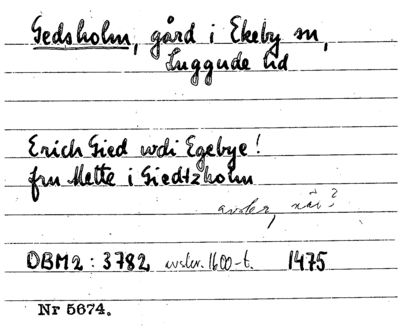 Gedsholm, gård i Ekeby sn,
Luggude hd
Erich Gied udi Egebye!
fru Mette i Giedtzholm
avskr, när?
OBM2: 3782 avskr. 1600-t. 1475
Nr 5674.